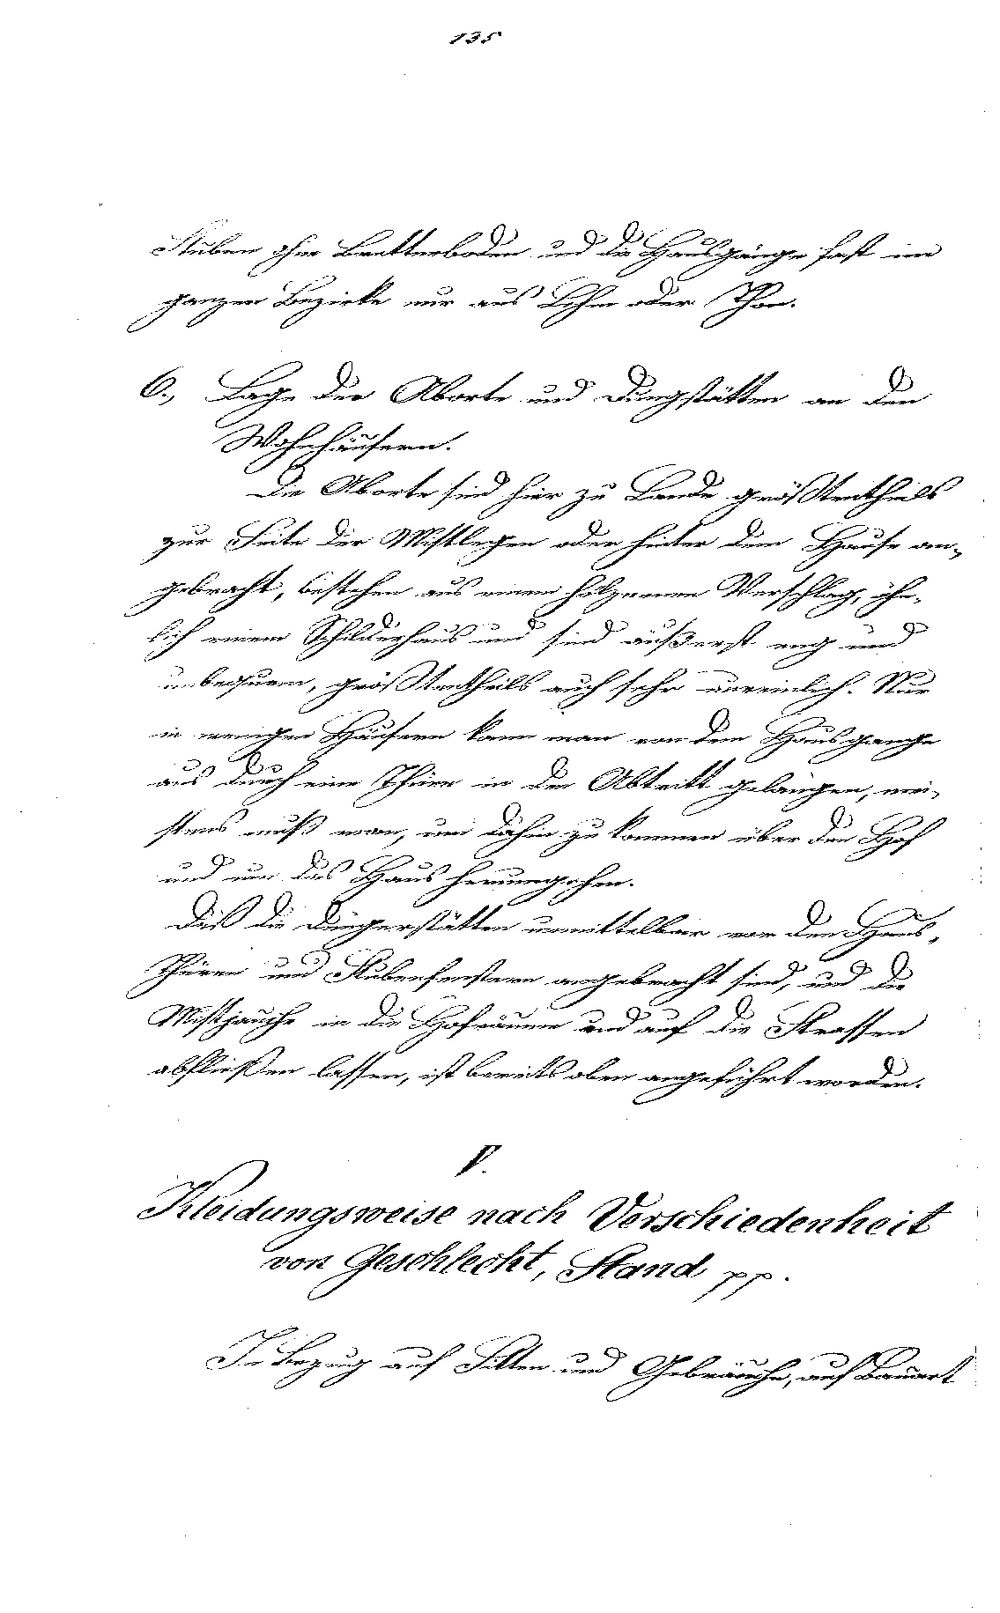 135
Stuben ohne Bretterboden und die Hausgänge fast im
ganzen Bezirke nur aus Lehm oder Thon.
6., Lage der Aborte und Dungstätten an den
Wohnhäusern.
Die Aborte sind hier zu Lande größtentheils
zur Seite der Mistlegen oder hinter dem Hause an-
gebracht, bestehen aus einem hölzernen Verschlag, ähn-
lich einem Schilderhaus und sind äußerst eng und
unbequem, größtentheils auch sehr unreinlich. Nur
in wenigen Häusern kann man von dem Hausgange
aus durch eine Thüre in den Abtritt gelangen, mei-
stens muß man, um dahin zu kommen über den Hof
und um das Haus herumgehen.
Daß die Düngerstätten unmittelbar vor den Haus-
Thüren und Stubenfenstern angebracht sind, und die
Mistjauche in die Hofräume und auf die Strassen
abfließen lassen, ist bereits oben angeführt worden.
V.
Kleidungsweise nach Verschiedenheit
von Geschlecht, Stand pp.
In Bezug auf Sitten und Gebräuche, auf Bauart